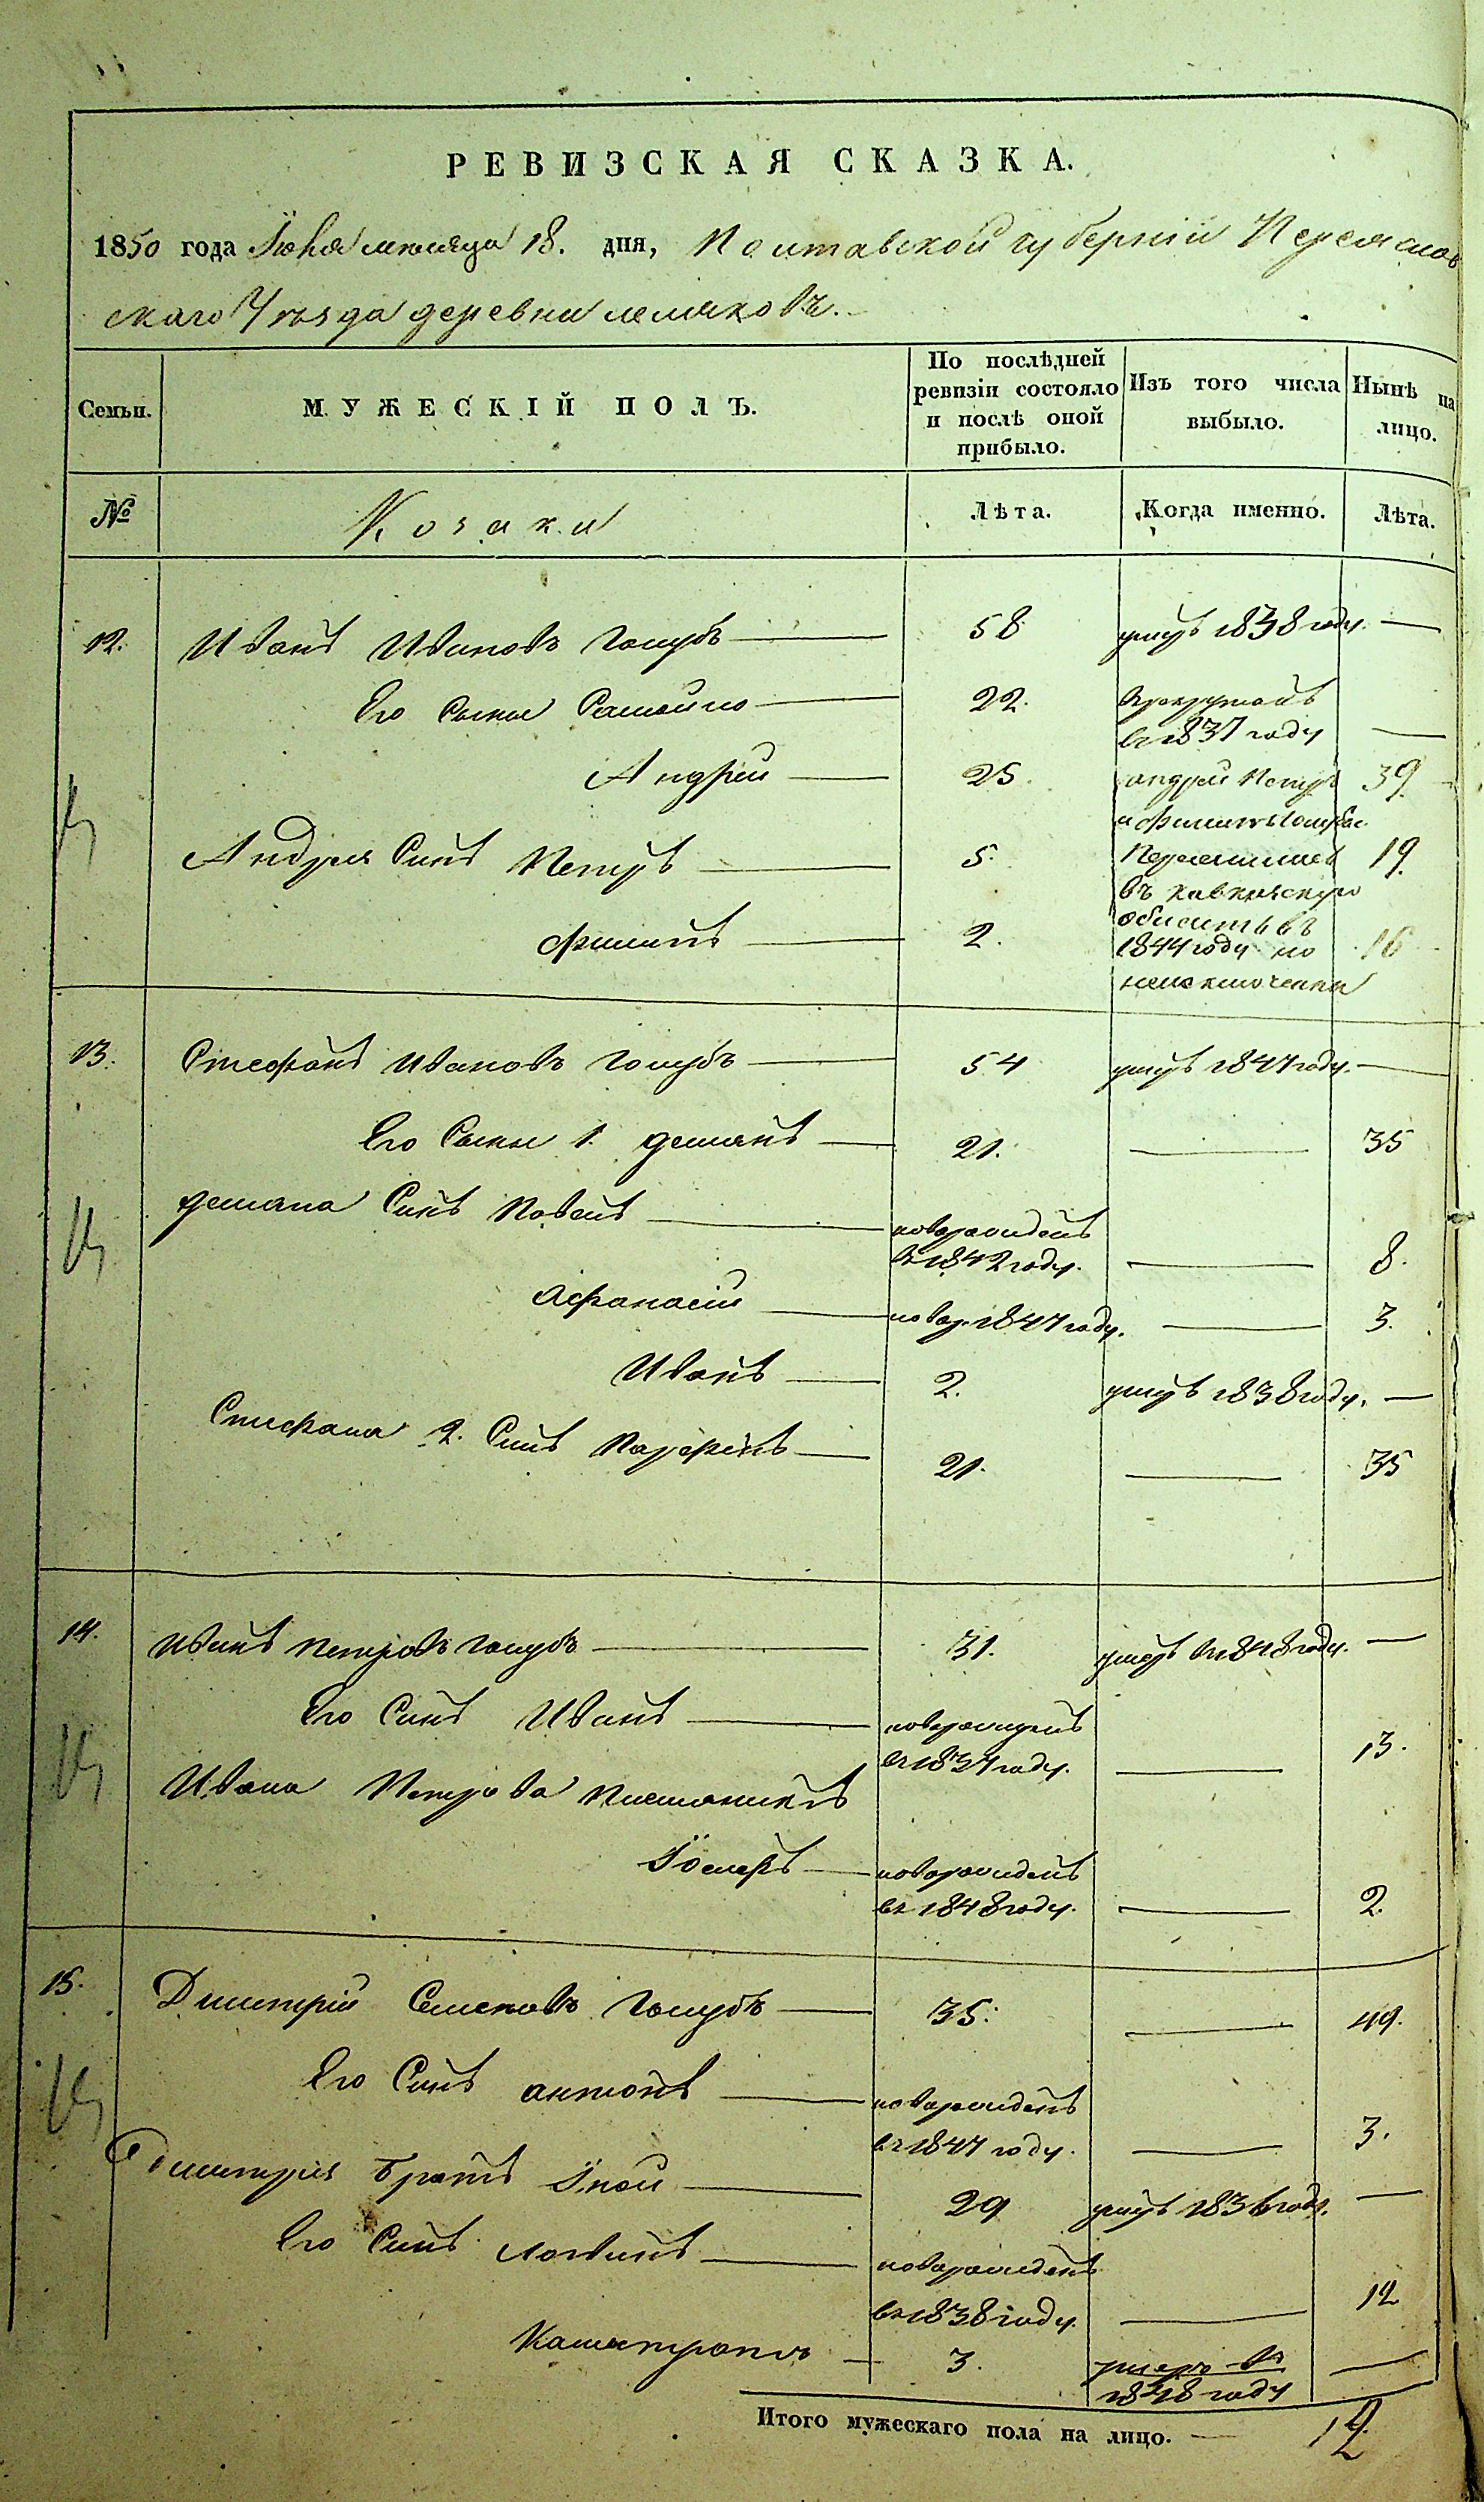 РЕВИЗСКАЯ СКАЗКА.
1850 года Іюня месяца 18. дня, Полтавской губерніи Переяслов
скаго Уезда деревни лемяковъ.
Семьи. МУЖЕСКІЙ ПОЛЪ. По послѣдней ревизіи состояло и послѣ оной прибыло. Изъ того числа выбыло. Нынѣ на лицо.
№ Козаки Лѣта. Когда именно. Лѣта.
12. Иванъ Ивановъ Голубъ 58 умеръ 1838 году. —
Его Сыны Самойло 22. в 1837 году —
Андрей 25 андрей Петръ 39
и филипъ Голубы
Андрея Синъ Петръ 5. Переселились 19
въ кавказскую
филипъ 2. область въ 16
1844 году но
неисключены
13. Стефанъ Ивановъ Голубъ 54 умеръ 1847 году. —
Его Сыны 1. демянъ 21. — 35
демяна Синъ Павелъ новорожденъ
в 1842 году. — 8.
Афанасій новор. 1847 году. — 3.
Иванъ 2. умеръ 1838 году. —
Стефана 2. Синъ Парфенъ 21. — 35
14. Иванъ Петровъ Голубъ 31. умеръ в 1848 году. —
Его Синъ Иванъ новорожденъ
в 1837 году. — 13.
Ивана Петрова племянникъ
Іосифъ новорожденъ
в 1848 году. — 2.
15. Дмитрій Семеновъ Голубъ 35. — 49.
Его Синъ антонъ новорожденъ
в 1847 году. — 3.
Дмитрія братъ 29 умеръ 1836 году. —
Его Синъ логвинъ новорожденъ
в 1838 году. — 12
Калистратъ 3. умеръ въ —
1848 году
Итого мужескаго пола на лицо. — 12